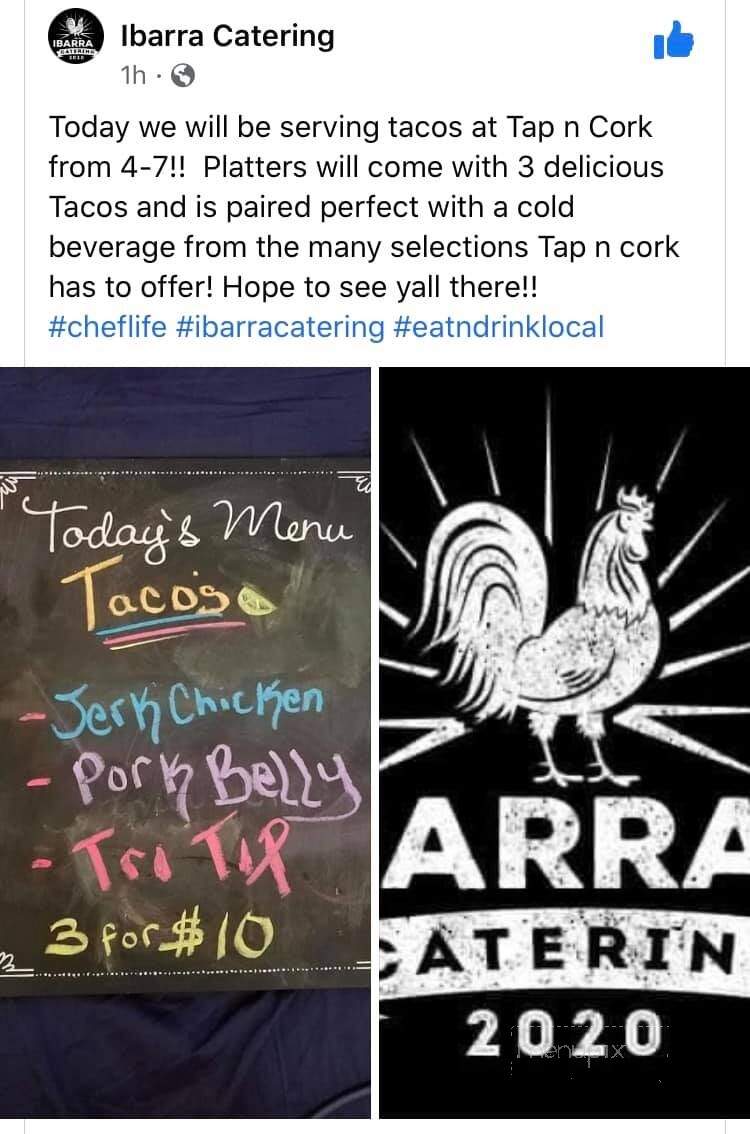 IBARRA
CATERING
2020
Ibarra Catering
1h ·
Today we will be serving tacos at Tap n Cork
from 4-7!! Platters will come with 3 delicious
Tacos and is paired perfect with a cold
beverage from the many selections Tap n cork
has to offer! Hope to see yall there!!
#cheflife #ibarracatering #eatndrinklocal
Today's Menu
Tacos
- Jerk Chicken
- Pork Belly
- Tri Tip
3 for $10
ARRA
CATERIN
2020
Menupix